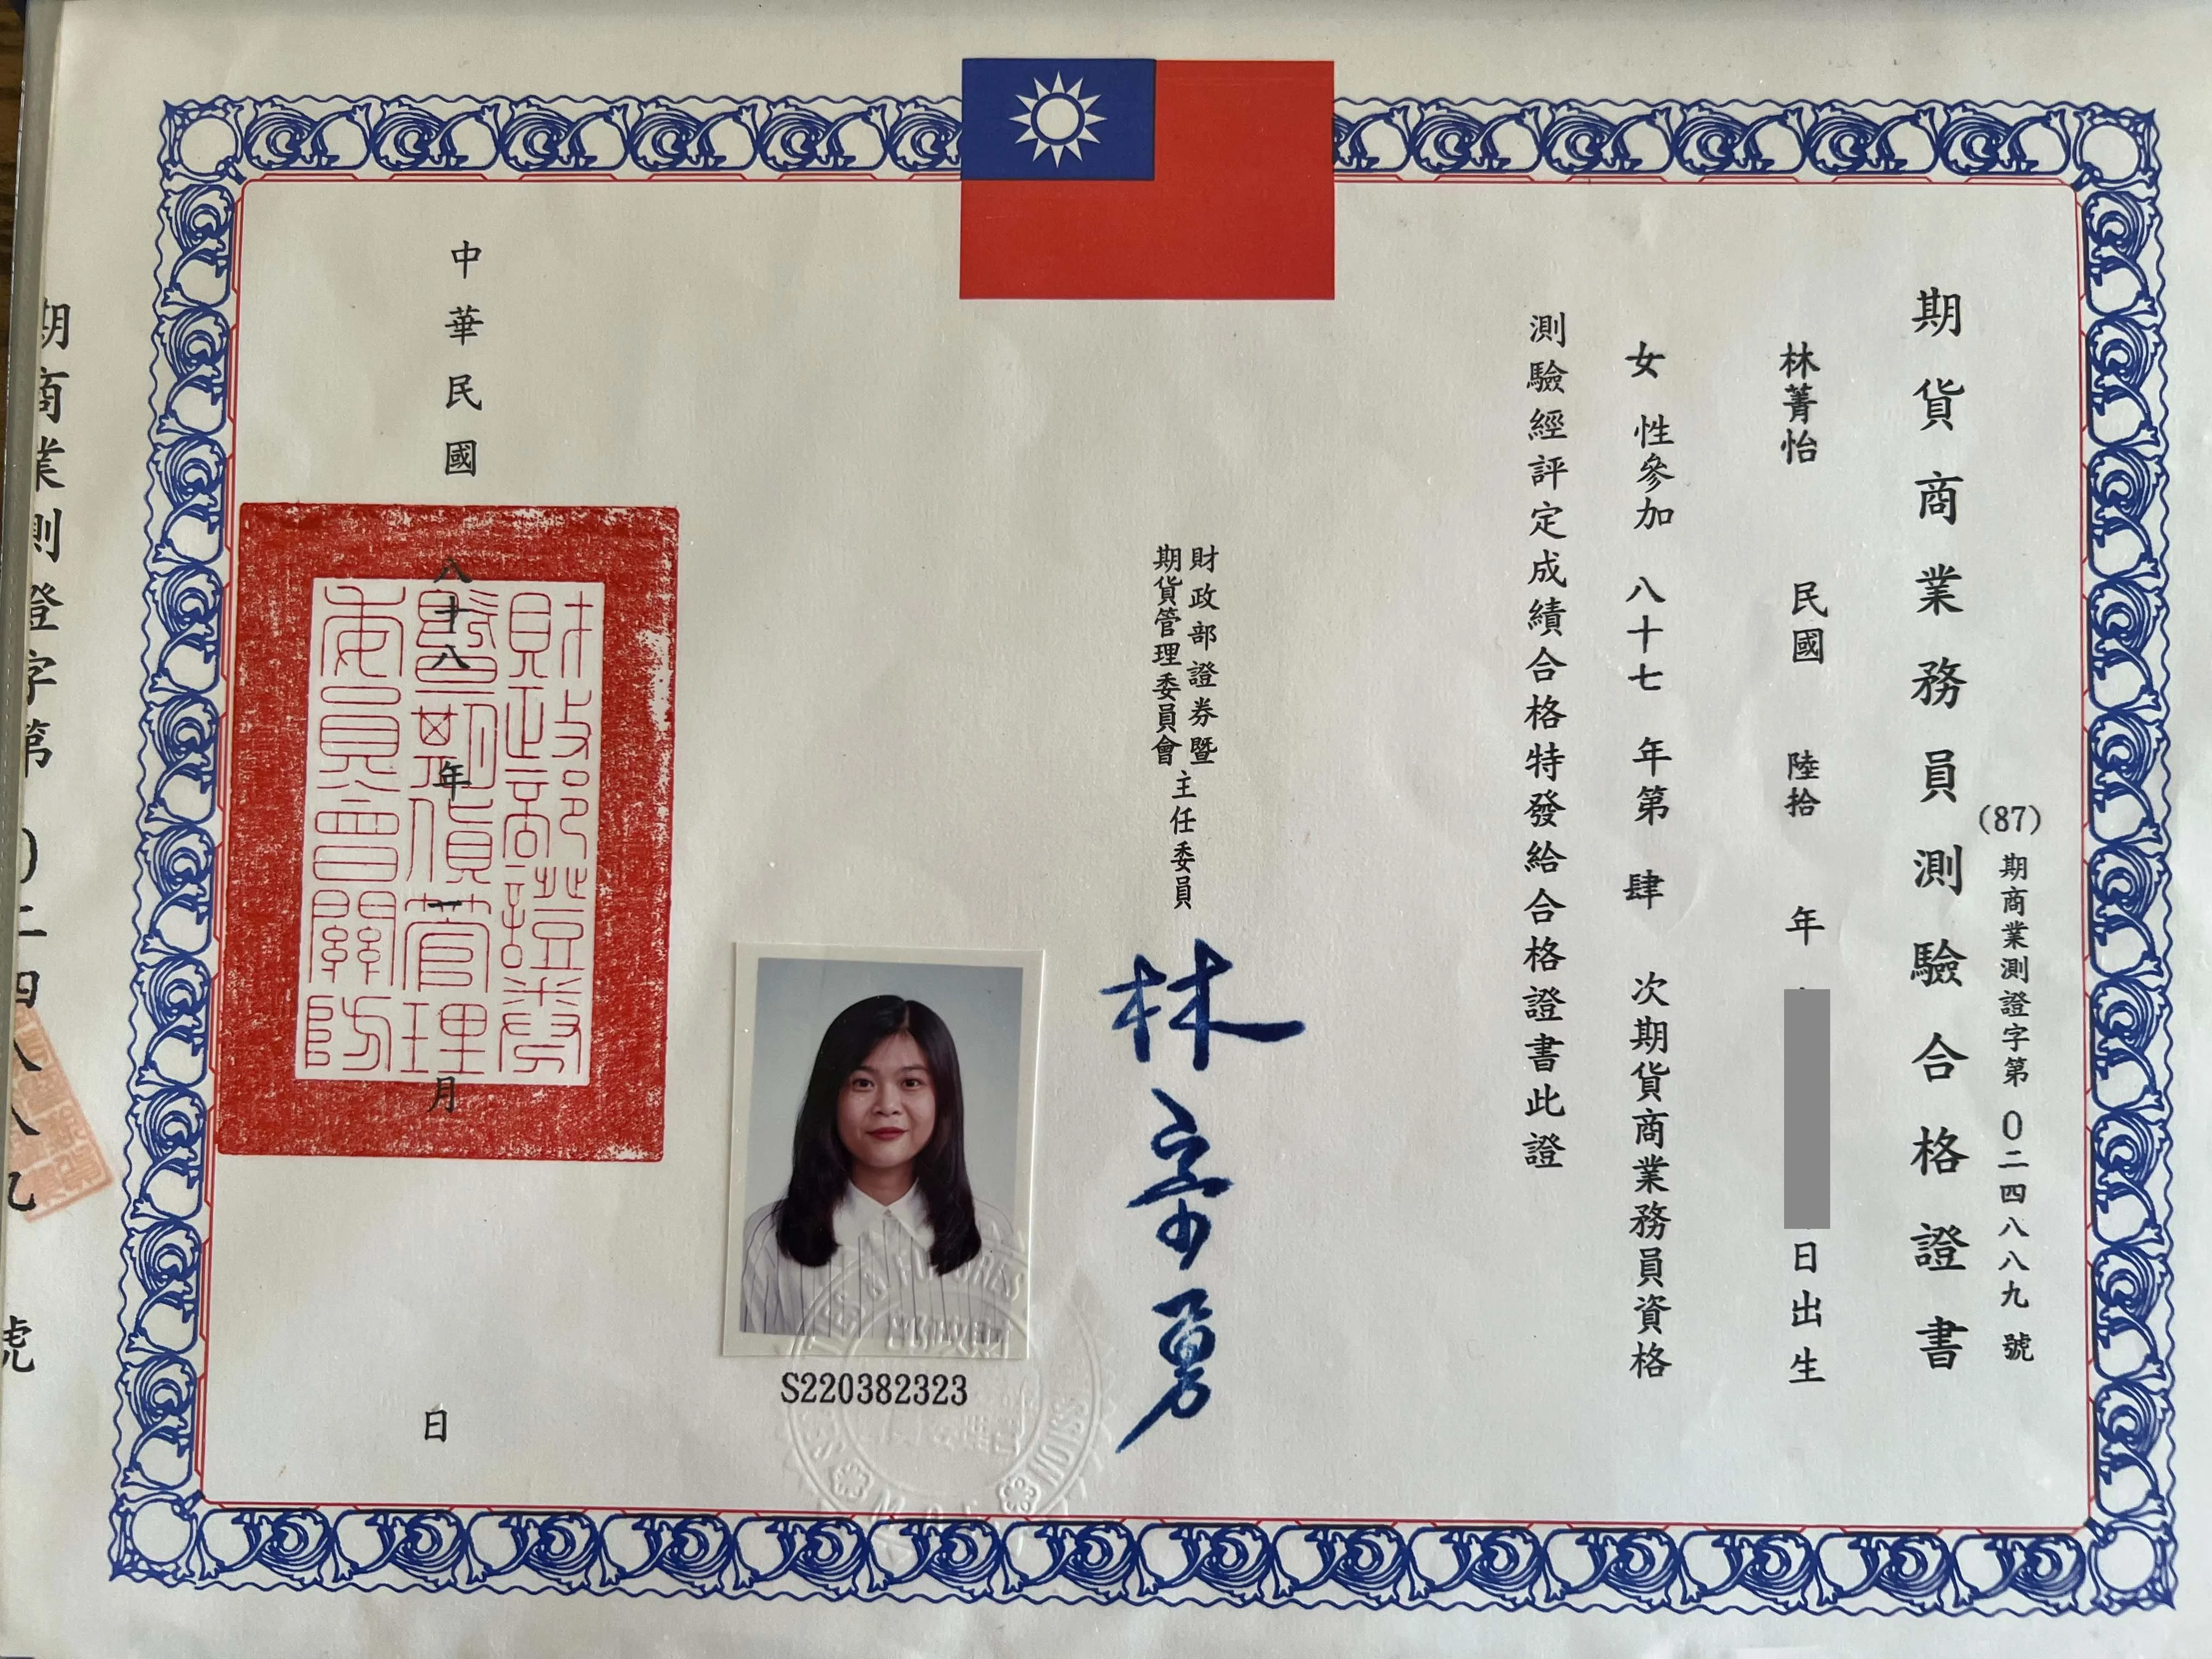 (87)期商業測證字第0二四八八九號
期貨商業務員測驗合格證書
林菁怡 民國 陸拾 年 日出生
女 性參加 八十七 年第 肆 次期貨商業務員資格
測驗經評定成績合格特發給合格證書此證
財政部證券暨
期貨管理委員會
主任委員
林宗勇
S220382323
中華民國 八十八 年 一 月 日
財政部證券
暨期貨管理
委員會關防
期商業測證字第0二四八八九號